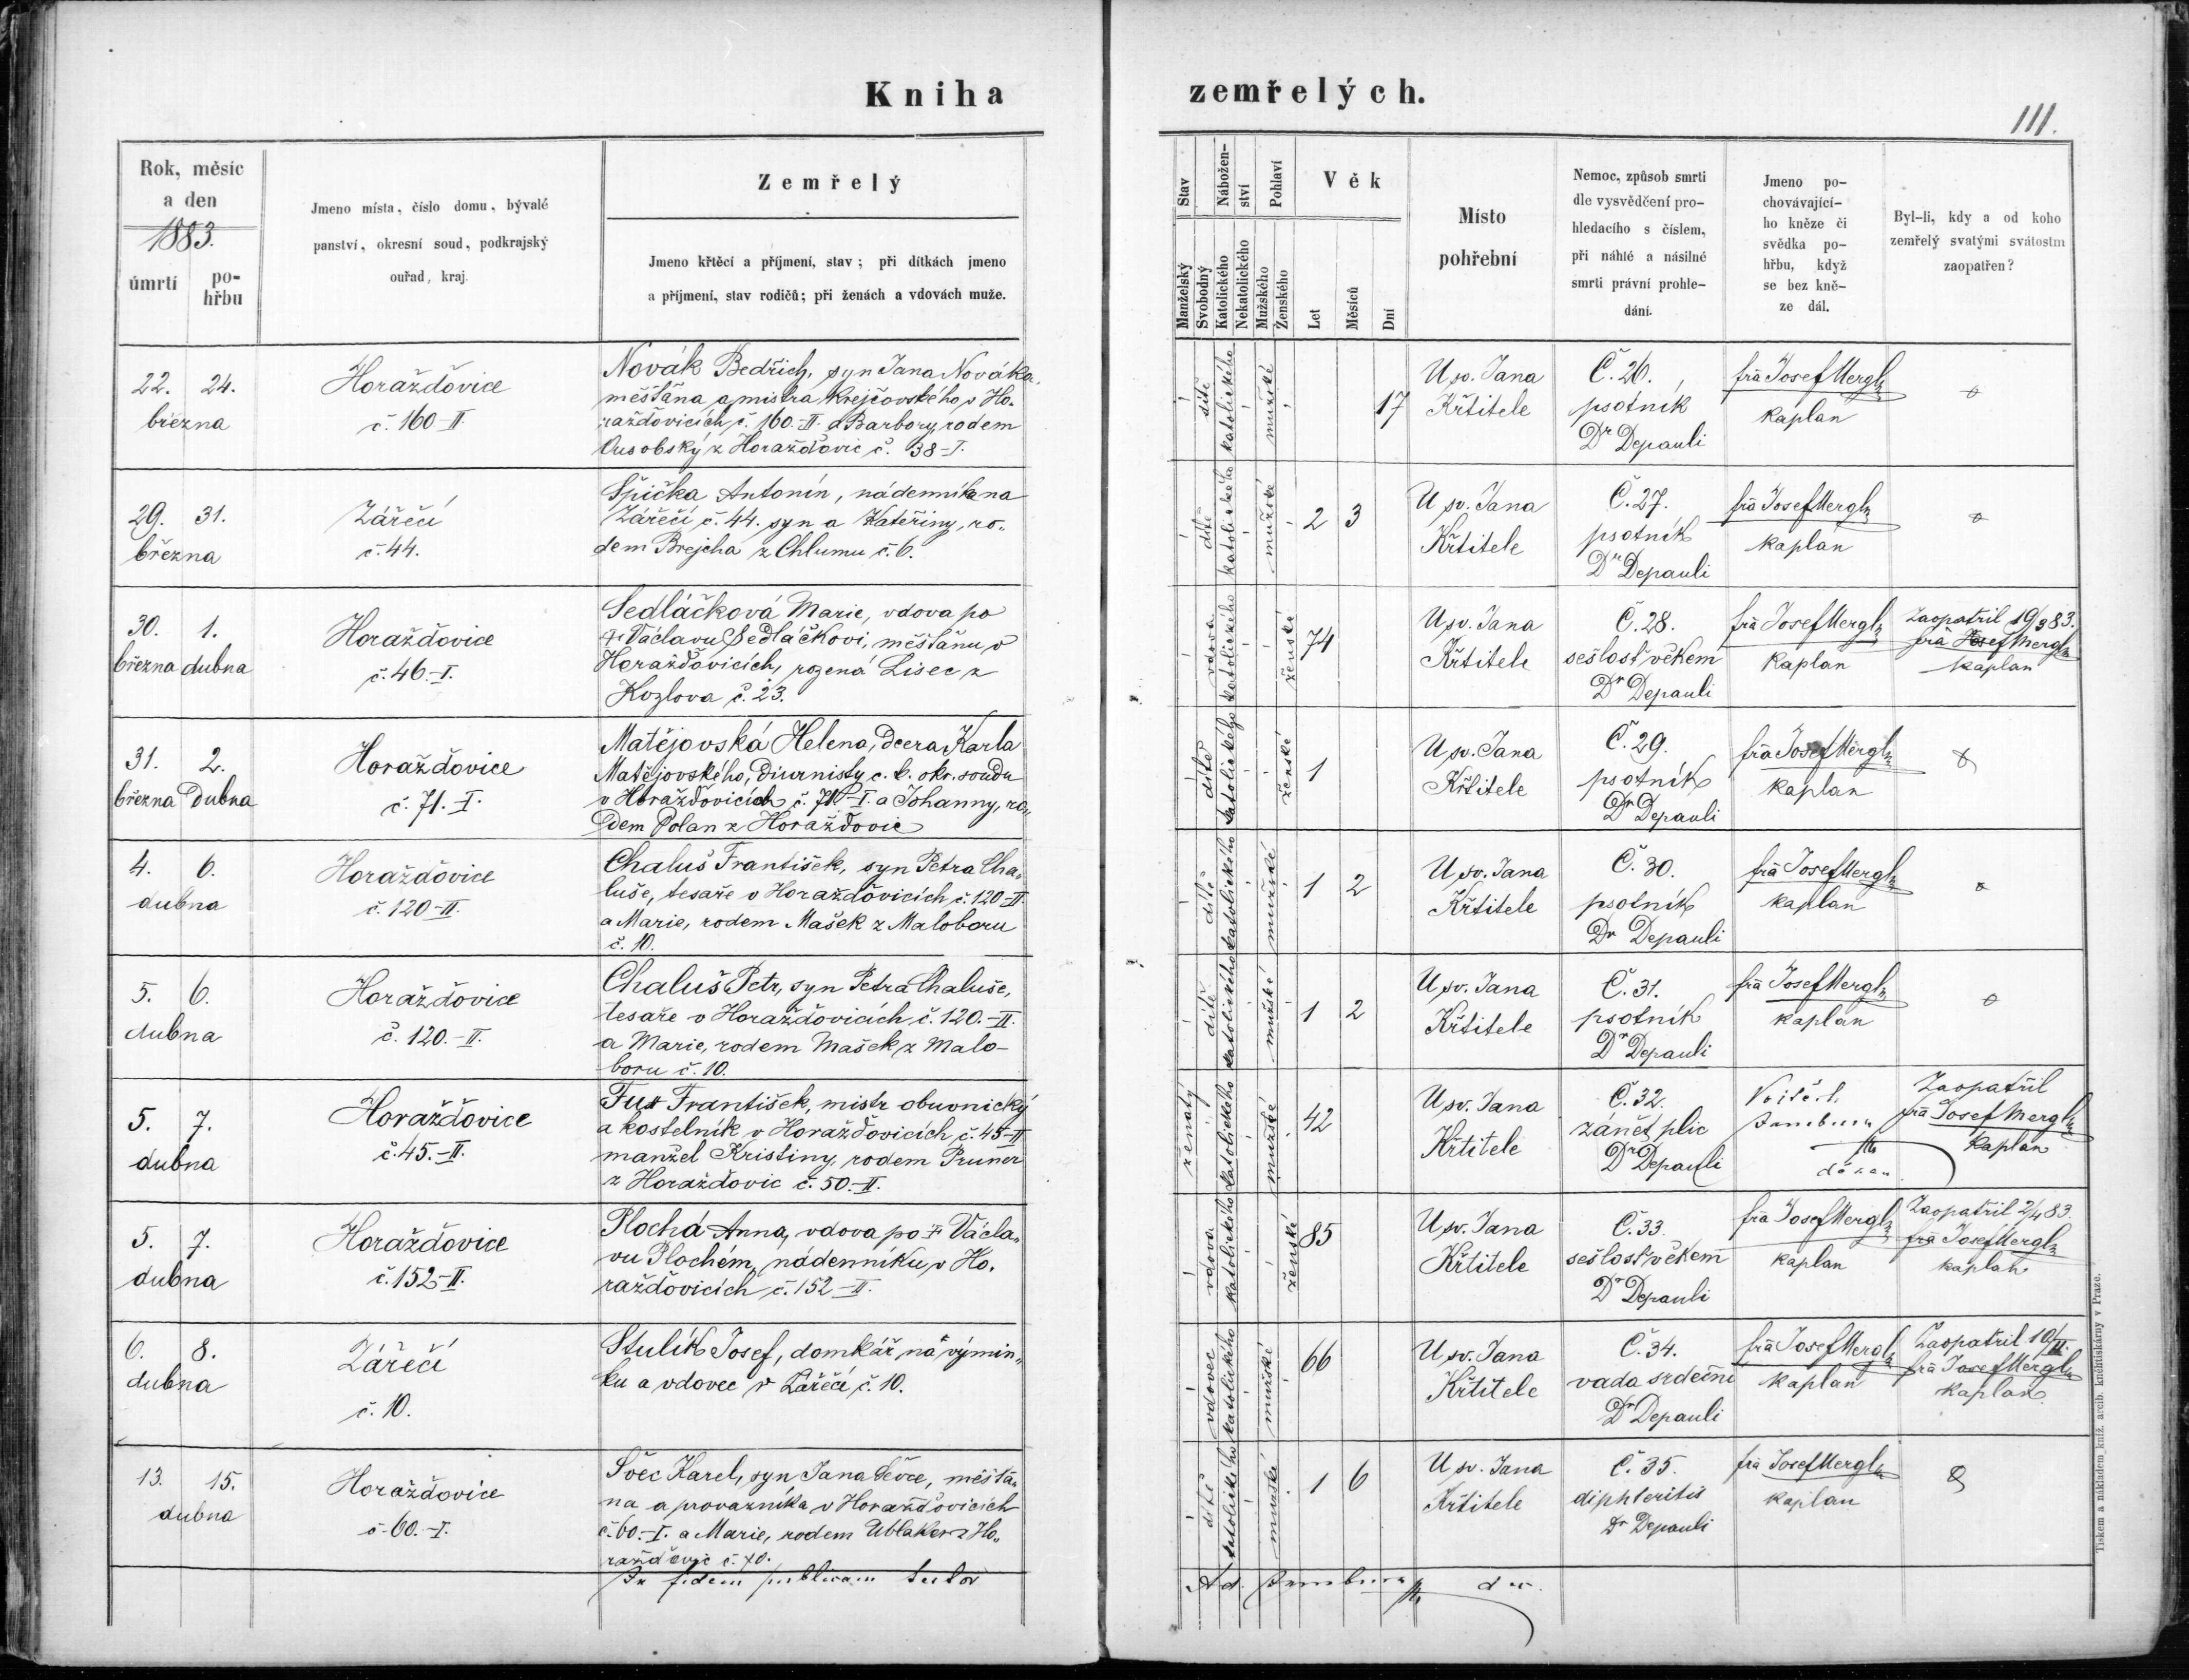 Kniha zemřelých.
111.
Rok, měsíc
a den
1883.
úmrtí
po-
hřbu
Jmeno místa, číslo domu, bývalé
panství, okresní soud, podkrajský
ouřad, kraj.
Zemřelý
Jmeno křtěcí a příjmení, stav; při dítkách jmeno
a příjmení, stav rodičů; při ženách a vdovách muže.
Stav
Manželský
Svobodný
Nábožen-
ství
Katolického
Nekatolického
Pohlaví
Mužského
Ženského
Věk
Let
Měsíců
Dní
Místo
pohřební
Nemoc, způsob smrti
dle vysvědčení pro-
hledacího s číslem,
při náhlé a násilné
smrti právní prohle-
dání.
Jmeno po-
chovávající-
ho kněze či
svědka po-
hřbu, když
se bez kně-
ze dál.
Byl-li, kdy a od koho
zemřelý svatými svátostmi
zaopatřen?
22. 24.
března
Horažďovice
č. 160-II.
Novák Bedřich, syn Jana Nováka,
měšťana a mistra krejčovského v Ho-
ražďovicích č. 160.-II. a Barbory, rodem
z Horažďovic č. 38-I.
dítě
katolického
mužské
17
U sv. Jana
Křtitele
Č. 26.
psotník
Dr Depauli
fra Josef Mergl
kaplan
29. 31.
března
Zářečí
č. 44.
Špička Antonín, nádenníka na
Zářečí č. 44. syn a Kateřiny, ro-
dem Brejcha z Chlumu č. 6.
dítě
katolického
mužské
2 3
U sv. Jana
Křtitele
Č. 27.
psotník
Dr Depauli
fra Josef Mergl
kaplan
30. 1.
března dubna
Horažďovice
č. 46.-I.
Sedláčková Marie, vdova po
+ Václavu Sedláčkovi, měšťanu v
Horažďovicích, rozená Lisec z
Kozlova č. 23.
vdova
katolického
ženské
74
U sv. Jana
Křtitele
Č. 28.
sešlosť věkem
Dr Depauli
fra Josef Mergl
kaplan
Zaopatřil 19/3 83.
fra Josef Mergl
kaplan
31. 2.
března Dubna
Horažďovice
č. 71.-I.
Matějovská Helena, dcera Karla
Matějovského, diurnisty c. k. okr. soudu
v Horažďovicích č. 71-I. a Johanny, ro-
dem Polan z Horažďovic
dítě
katolického
ženské
1
U sv. Jana
Křtitele
Č. 29.
psotník
Dr Depauli
fra Josef Mergl
kaplan
4. 6.
dubna
Horažďovice
č. 120-II.
Chaluš František, syn Petra Cha-
luše, tesaře v Horažďovicích č. 120-II.
a Marie, rodem Mašek z Maloboru
č. 10.
dítě
katolického
mužské
1 2
U sv. Jana
Křtitele
Č. 30.
psotník
Dr Depauli
fra Josef Mergl
kaplan
5. 6.
dubna
Horažďovice
č. 120.-II.
Chaluš Petr, syn Petra Chaluše,
tesaře v Horažďovicích č. 120.-II.
a Marie, rodem Mašek z Malo-
boru č. 10.
dítě
katolického
mužské
1 2
U sv. Jana
Křtitele
Č. 31.
psotník
Dr Depauli
fra Josef Mergl
kaplan
5. 7.
dubna
Horažďovice
č. 45.-II.
František, mistr obuvnický
a kostelník v Horažďovicích č. 45-II
manžel Kristiny, rodem Pruner
z Horažďovic č. 50.-II.
ženatý
katolického
mužské
42
U sv. Jana
Křtitele
Č. 32.
zánět plic
Dr Depauli
Vojtěch
děkan
Zaopatřil
fra Josef Mergl
kaplan
5. 7.
dubna
Horažďovice
č. 152-II.
Plochá Anna, vdova po + Václa-
vu Plochém, nádenníku v Ho-
ražďovicích č. 152-II.
vdova
katolického
ženské
85
U sv. Jana
Křtitele
Č. 33.
sešlosť věkem
Dr Depauli
fra Josef Mergl
kaplan
Zaopatřil 2/4 83
fra Josef Mergl
kaplan
6. 8.
dubna
Zářečí
č. 10.
Stulík Josef, domkář na výmin-
ku a vdovec v Zářečí č. 10.
vdovec
katolického
mužské
66
U sv. Jana
Křtitele
Č. 34.
vada srdeční
Dr Depauli
fra Josef Mergl
kaplan
Zaopatřil 10/III.
fra Josef Mergl
kaplan
13. 15.
dubna
Horažďovice
č. 60.-I.
Švec Karel, syn Jana Ševce, měšťa-
na a provazníka v Horažďovicích
č. 60.-I. a Marie, rodem Ublaker z Ho-
ražďovic č. 40.
dítě
katolického
mužské
1 6
U sv. Jana
Křtitele
Č. 35.
diphteritis
Dr Depauli
fra Josef Mergl
kaplan
In fidem publicam
Tiskem a nákladem kníž. arcib. knihtiskárny v Praze.